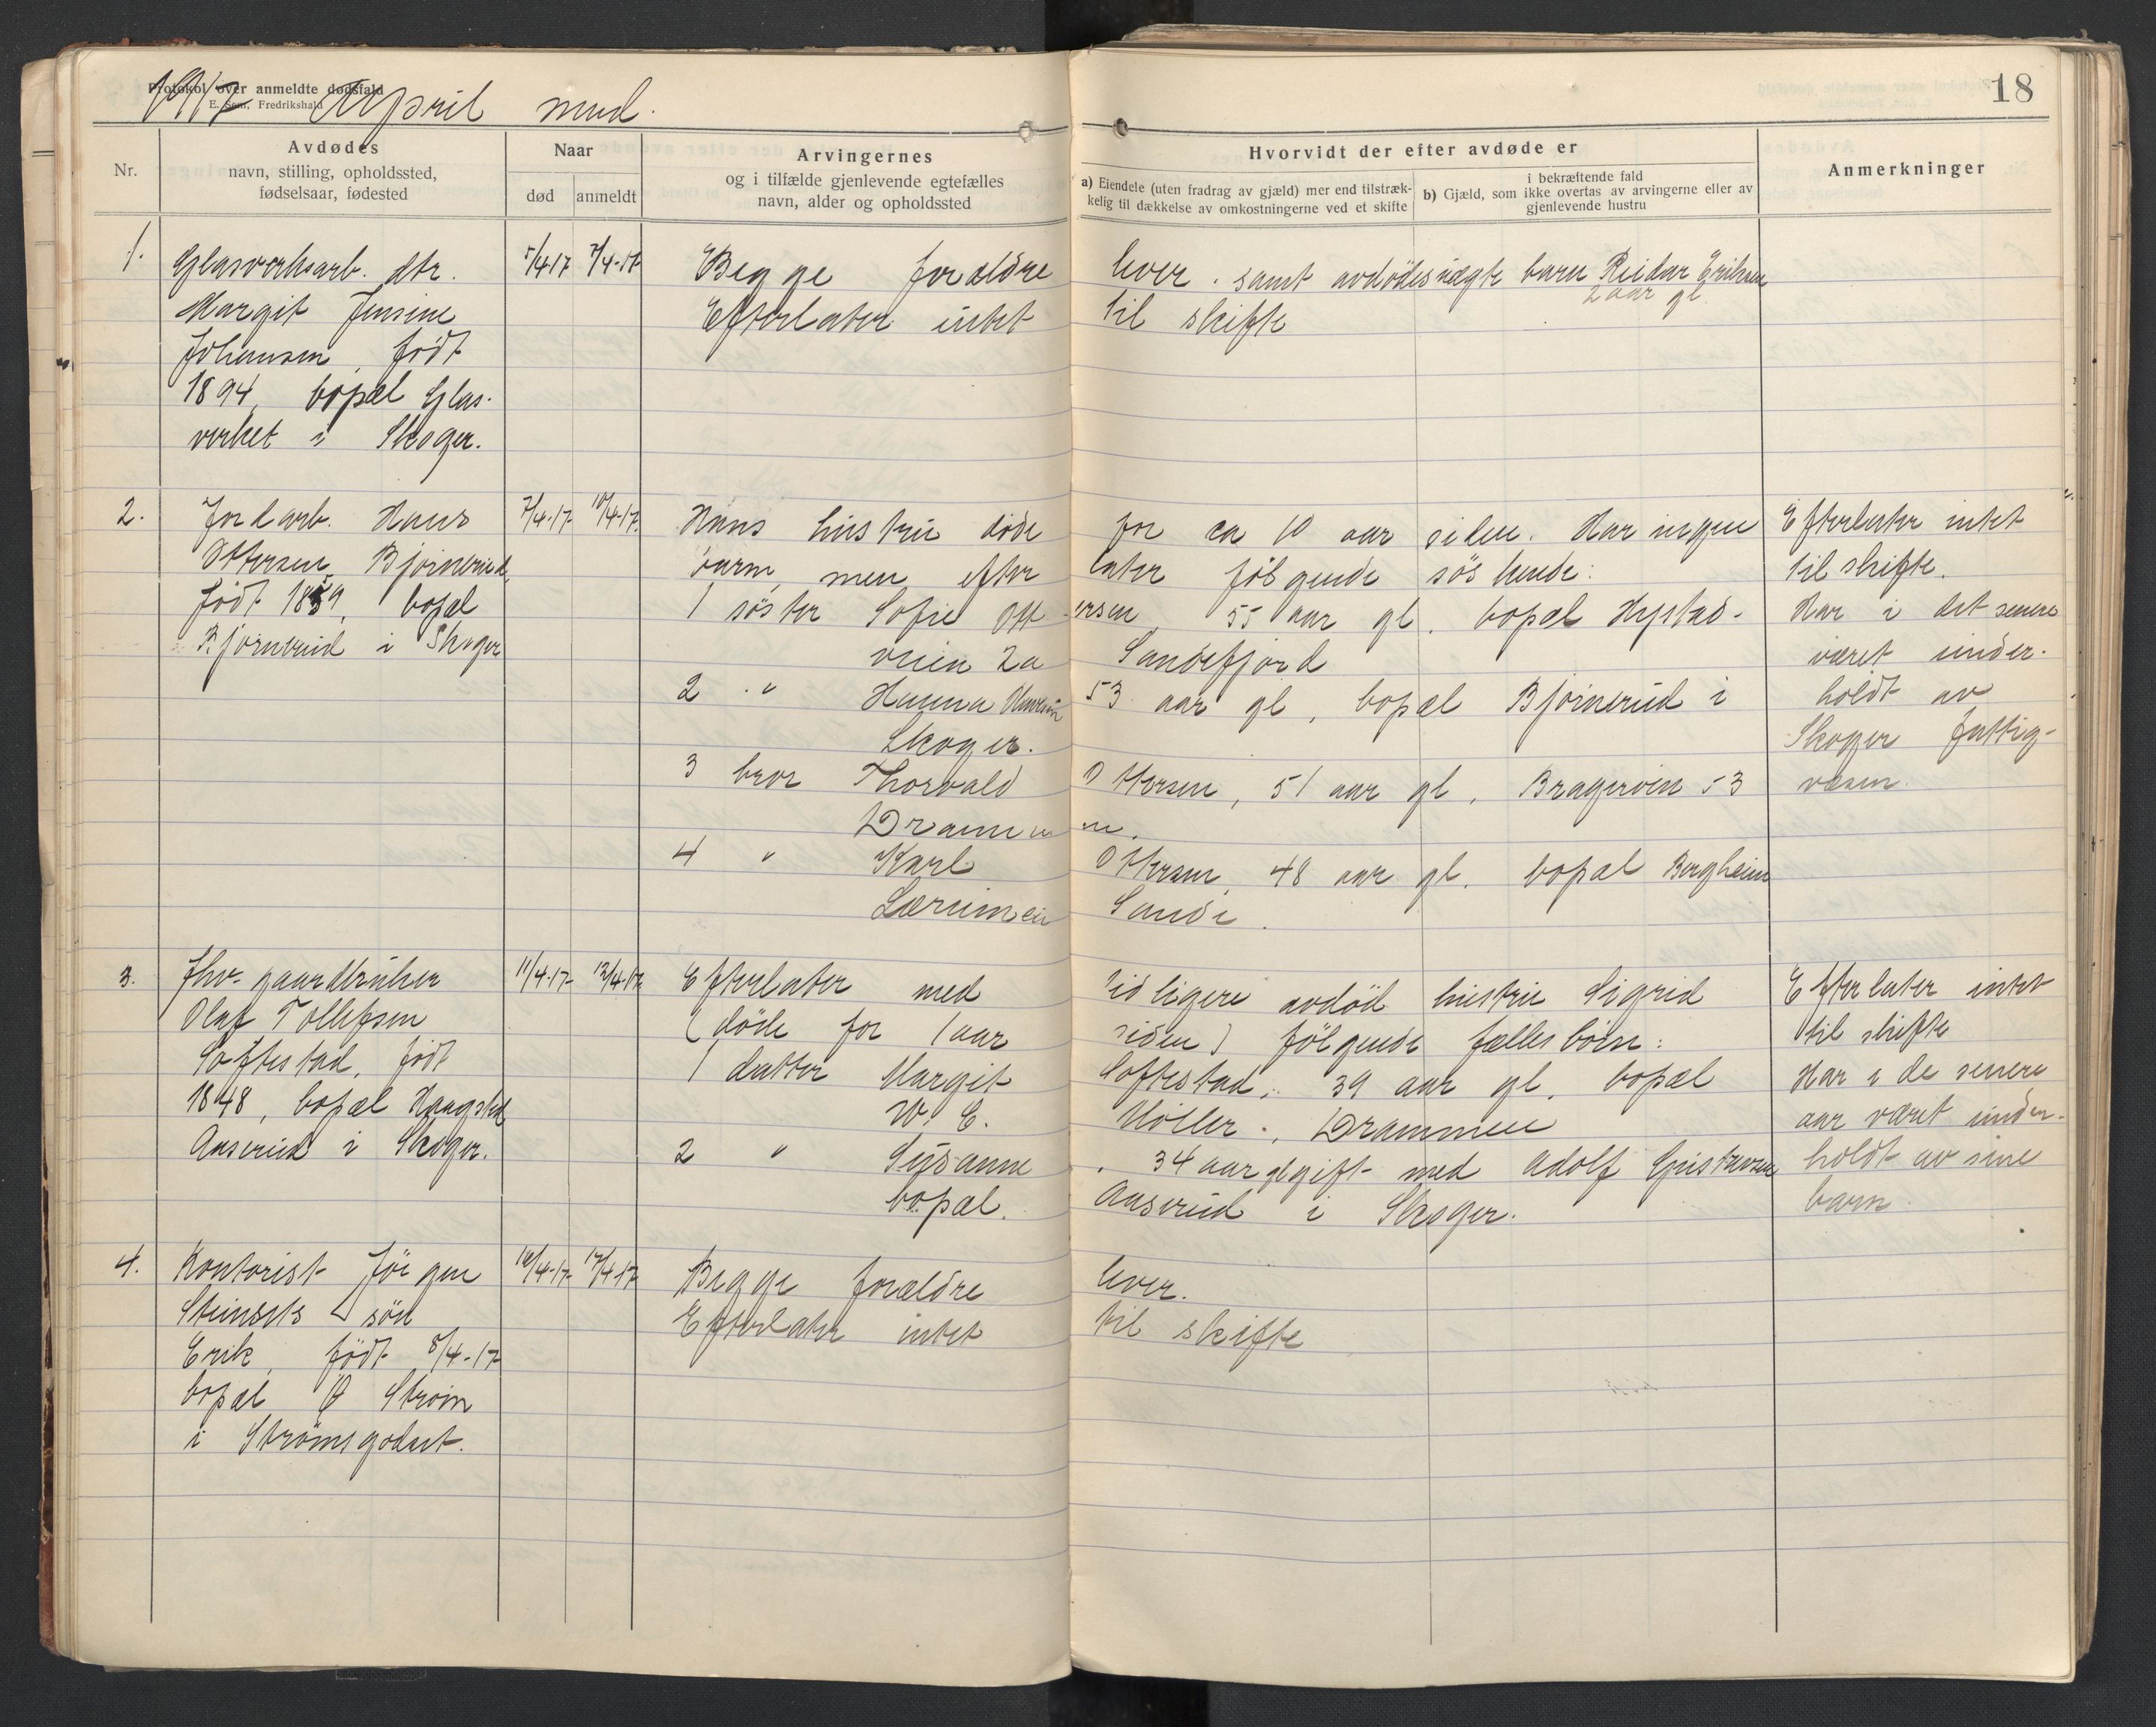 Protokol over anmeldte dødsfald
E. Sem, Fredrikshald
1917 April mnd.
18
Nr.
Avdødes
navn, stilling, opholdssted,
fødselsaar, fødested
Naar
død
anmeldt
Arvingernes
og i tilfælde gjenlevende egtefælles
navn, alder og opholdssted
Hvorvidt der efter avdøde er
a) Eiendele (uten fradrag av gjæld) mer end tilstræk-
kelig til dækkelse av omkostningerne ved et skifte
i bekræftende fald
b) Gjæld, som ikke overtas av arvingerne eller av
gjenlevende hustru
Anmerkninger
1. Glasverksarb. dtr. 5/4 17 7/4-17 Begge forældre lever. samt avdødes uægte barn Reidar Eriksen
2 aar gl.
Margit Jensine Efterlater intet til skifte
Johansen, født
1894, bopæl Glas-
verket i Skoger.
2. Jordarb. Hans 7/4-17 10/4-17. Hans hustru døde for ca 10 aar siden. Har ingen Efterlater intet
Ottersen Bjørnerud, barn, men efterlater følgende søskende: til skifte.
født 1859, bopæl 1 søster Sofie Ottersen, 55 aar gl, bopæl Hystad- Har i det senere
Bjørnerud i Skoger veien 2a Sandefjord været under-
2 " Hanna 53 aar gl, bopæl Bjørnerud i holdt av
Skoger. Skoger fattig-
3 bror Thorvald Ottersen, 51 aar gl, Bragerøen 53 væsen.
Drammen.
4 " Karl Ottersen, 48 aar gl. bopæl Bergheim
Sande.
3. Fhv. gaardbruker 11/4-17 13/4-17 Efterlater med tidligere avdød hustru Sigrid Efterlater intet
Olaf Tollefsen (døde for 1 aar siden) følgende fællesbørn: til skifte
Softestad, født 1 datter Margit Softestad, 39 aar gl, bopæl Har i de senere
1848, bopæl W. C. Møller, Drammen aar været under-
Aaserud i Skoger. 2 " Susanne, 34 aar gl gift med Adolf Gustavsen holdt av sine
bopæl. Aaserud i Skoger. barn.
4. Kontorist Jørgen 16/4-17 17/4-17 Begge forældre lever.
Steinsets søn Efterlater intet til skifte
Erik, født 8/4-17
bopæl Ø Strøm
i Strømsgodset.